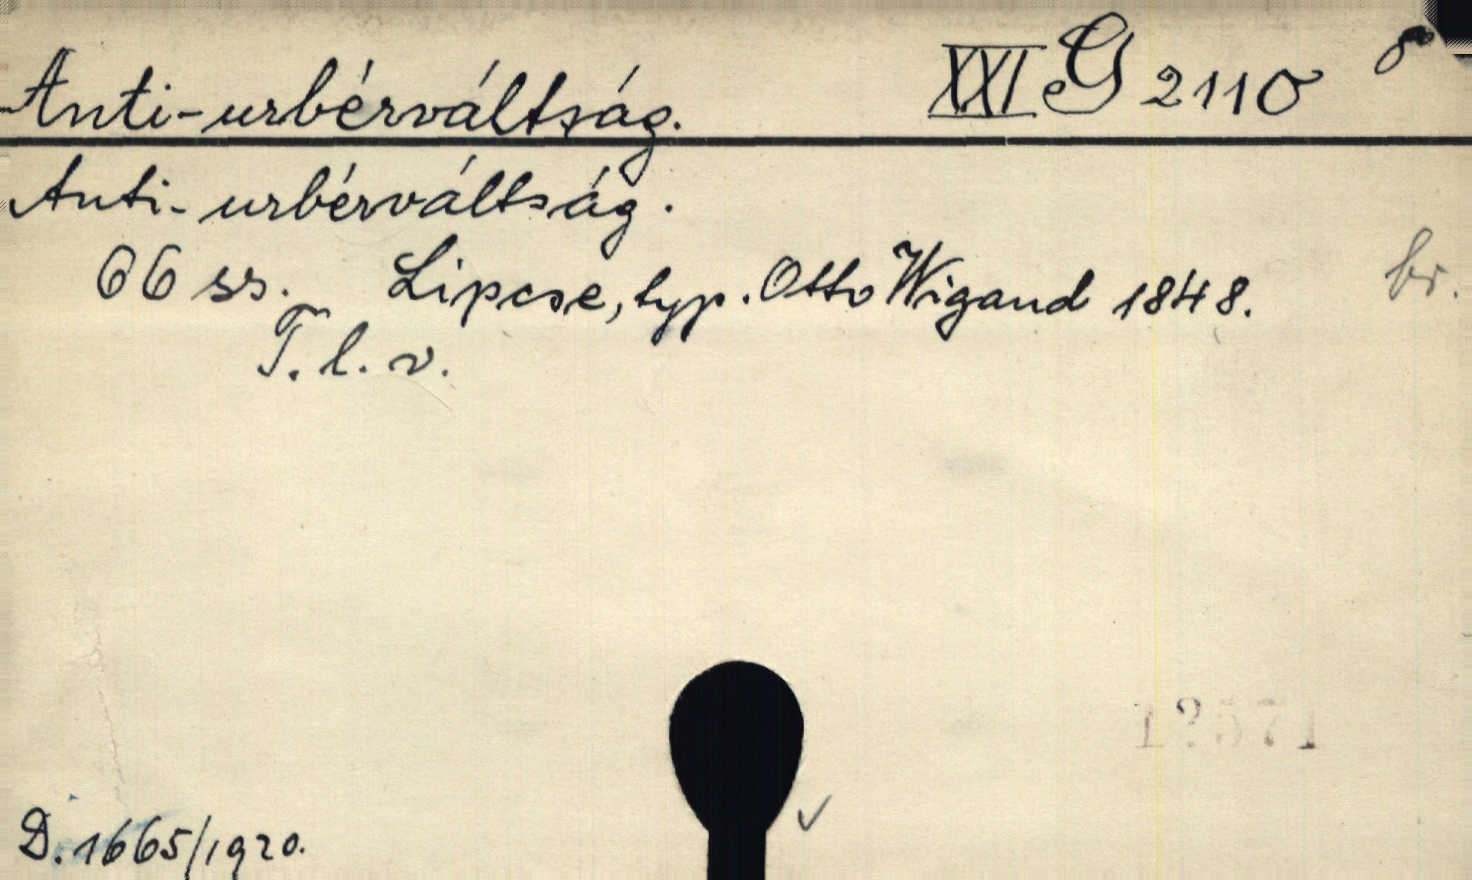 Anti-urbérváltság. XXI G 2110 8
Anti-urbérváltság.
66 ss. Lipcse, typ. Otto Wigand 1848. br.
T. l. v.
D. 1665/1920.